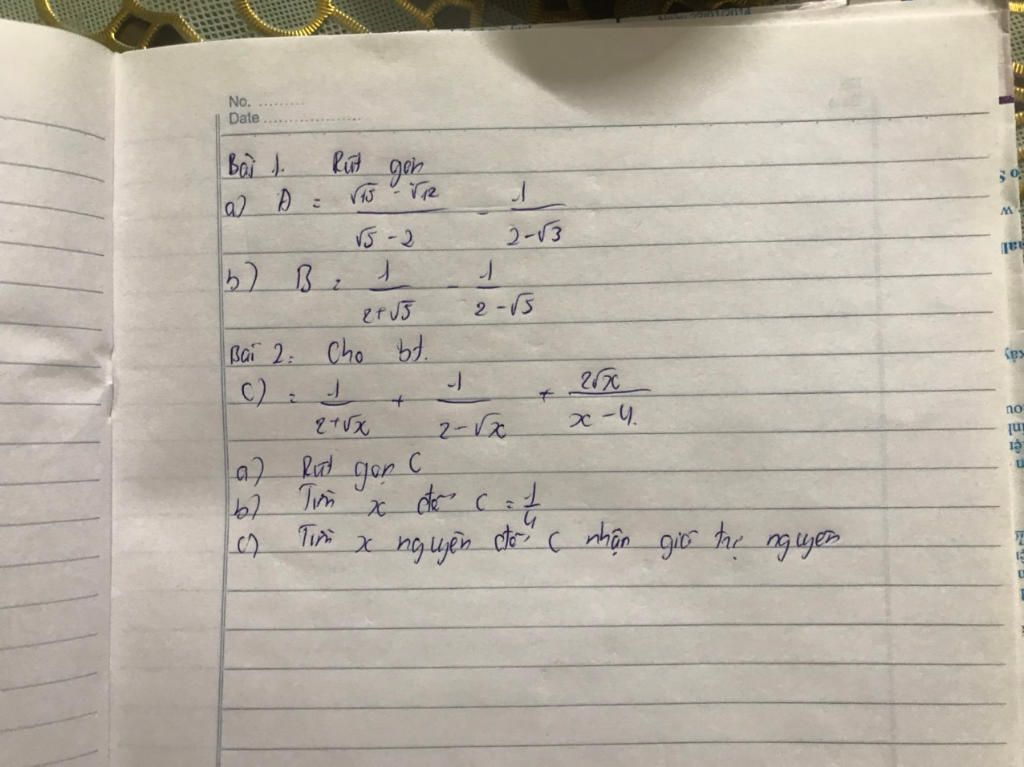 No. .........
Date ...................
Bài 1. Rút gọn
a) A = (√15 - √12)/(√5 - 2) - 1/(2-√3)
b) B = 1/(2+√5) - 1/(2-√5)
Bài 2: Cho bt.
C) = 1/(2+√x) + 1/(2-√x) + 2√x/(x-4).
a) Rút gọn C
b) Tìm x để C = 1/4
c) Tìm x nguyên để C nhận giá trị nguyên